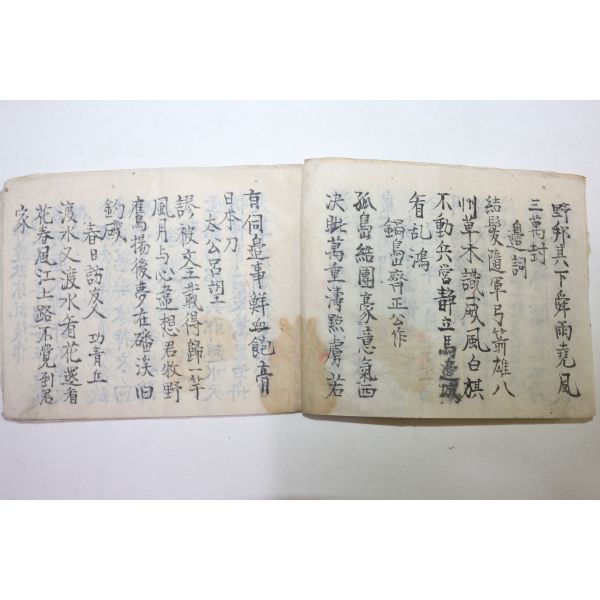 野邦其下舜雨堯風
三萬封
邊詞
結髮隨軍弓箭雄八
州草木識威風白旗
不動兵営静立馬邊城
看乱鴻
鍋島齊正公作
孤島結團豪意氣西
決眦萬重濤黠虜若
有伺邊事鮮血飽膏
日本刀
太公
謬被文王載得歸一竿
風月与心違想君牧野
鷹揚後夢在磻溪旧
釣磯
春日訪友人
渡水又渡水看花還看
花春風江上路不覚到君
家